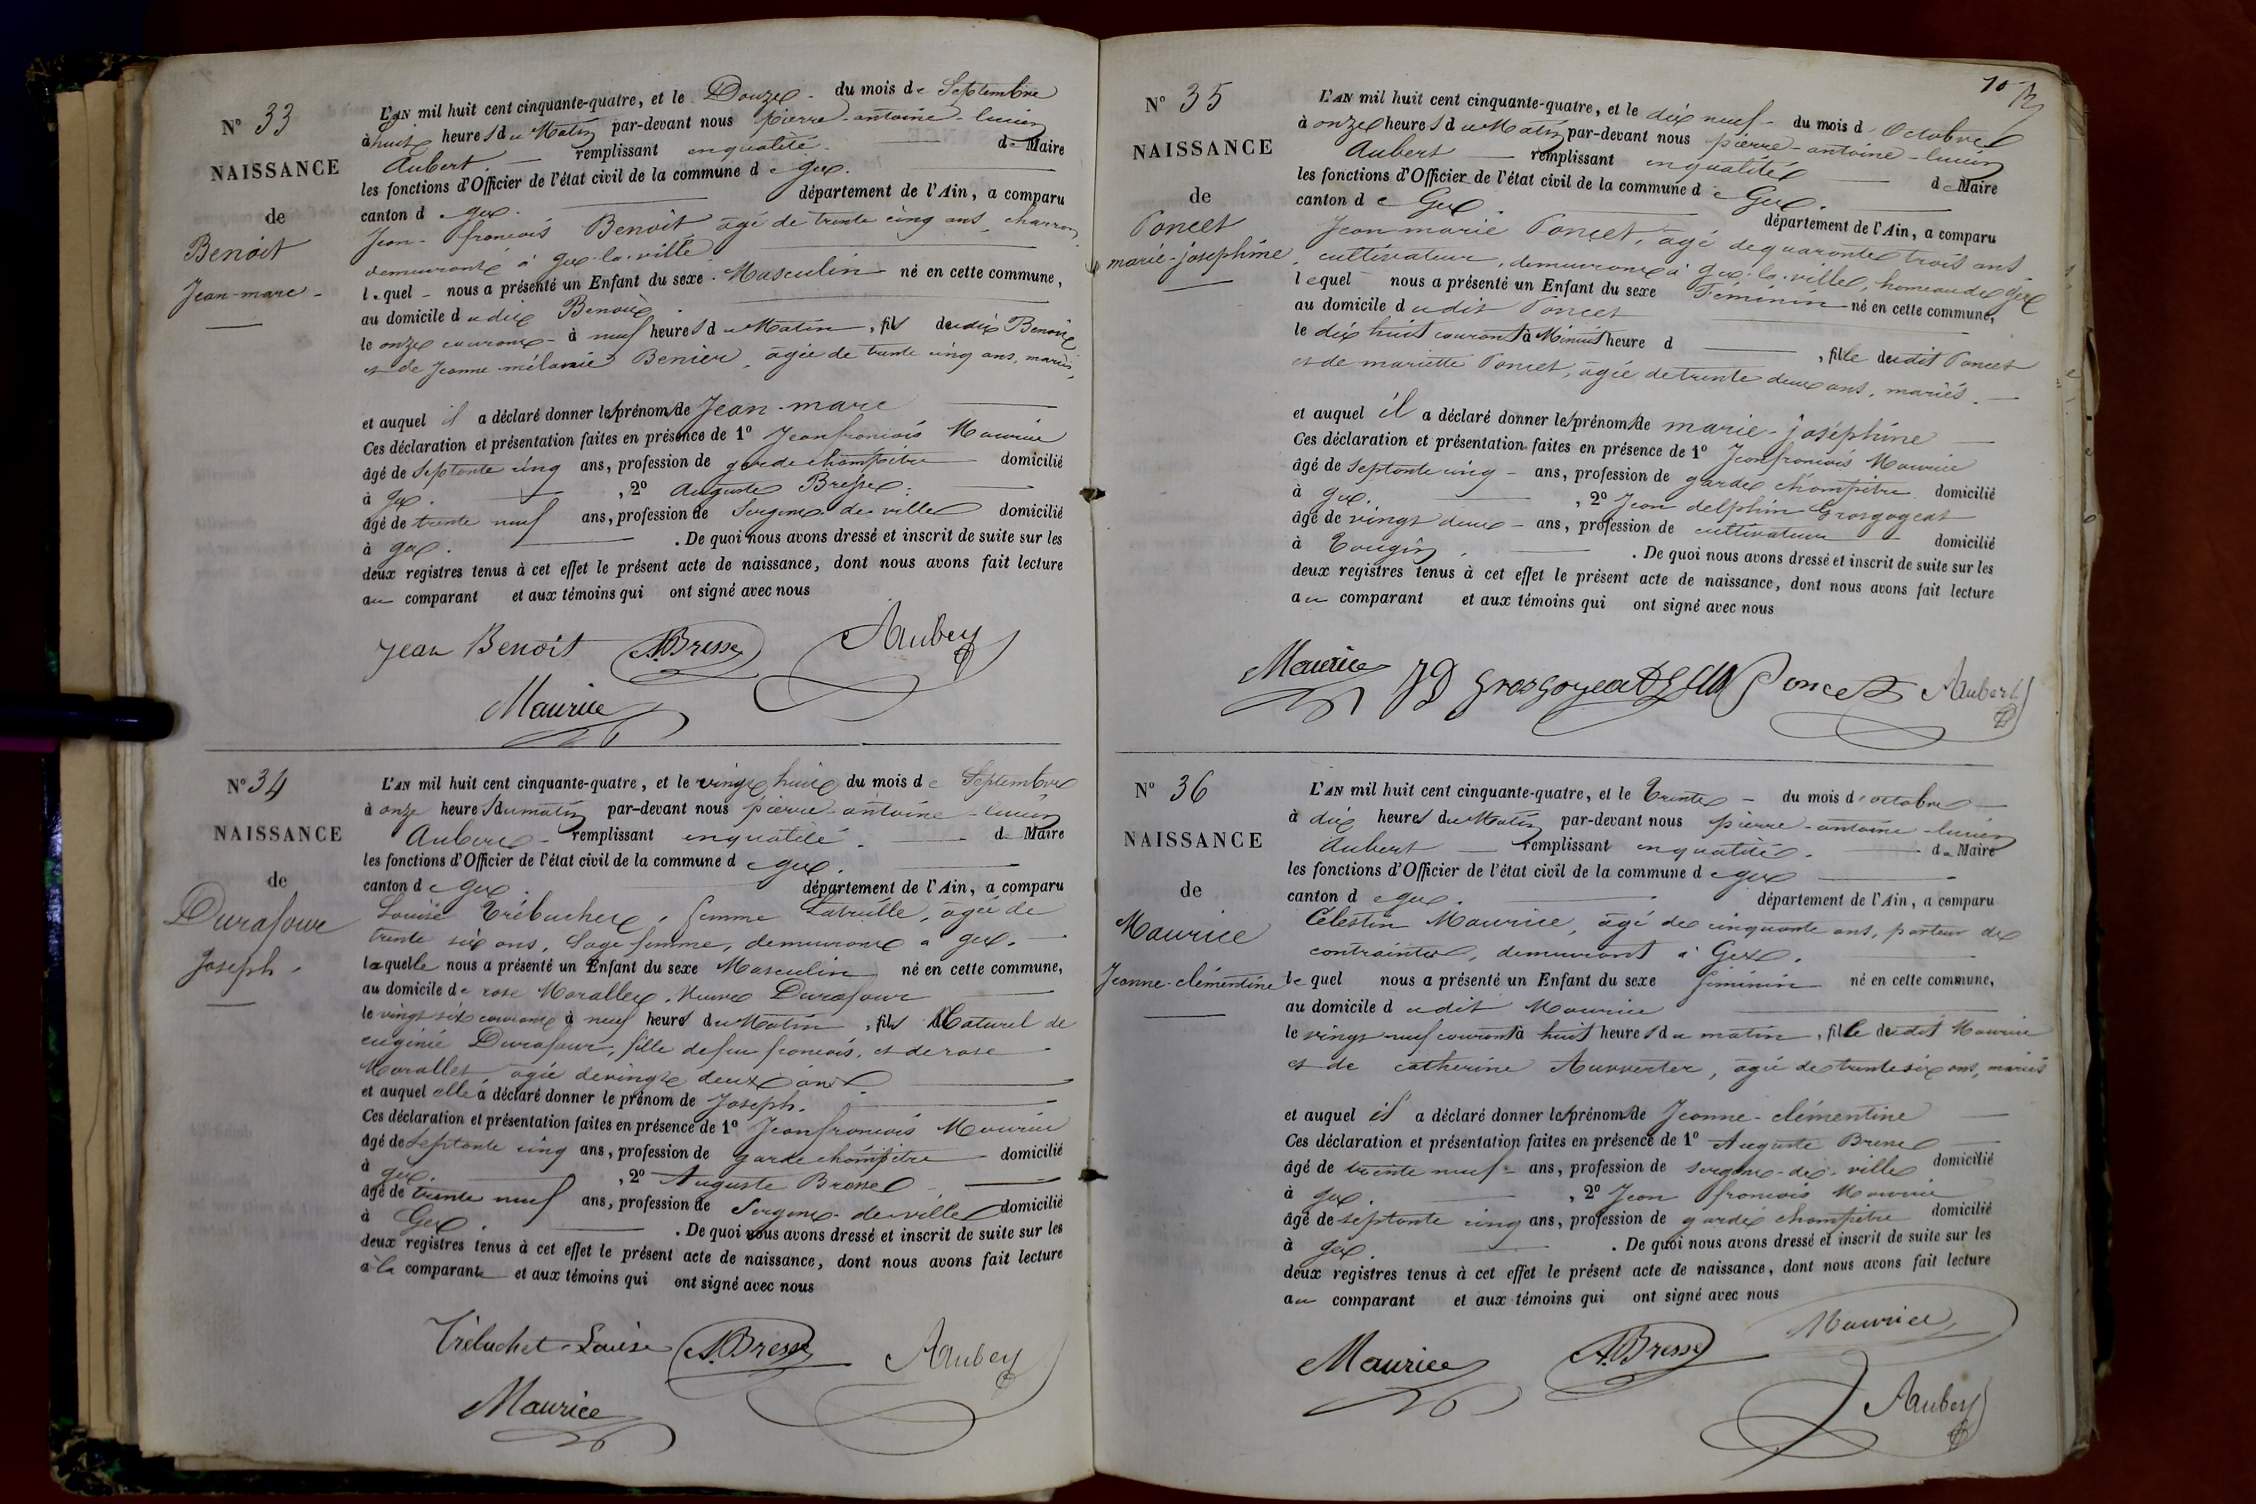 N° 33
NAISSANCE
de
Benoit
Jean-marc -
L'AN mil huit cent cinquante-quatre, et le Douze - du mois de Septembre
à huit heures du Matin par-devant nous pierre-antoine-lucien
Aubert - remplissant en qualité - de Maire
les fonctions d'Officier de l'état civil de la commune de gex.
canton de gex. département de l'Ain, a comparu
Jean-francois Benoit âgé de trente cinq ans, charron
demeurant à gex-la-ville
lequel - nous a présenté un Enfant du sexe Masculin né en cette commune,
au domicile dudit Benoit
le onze courant - à neuf heures du Matin, fils dudit Benoit
et de Jeanne mélanie Benier, agée de trente cinq ans, mariés,
et auquel il a déclaré donner les prénoms de Jean-marc
Ces déclaration et présentation faites en présence de 1° Jean francois Maurice
âgé de septante cinq ans, profession de garde champêtre domicilié
à gex. , 2° Auguste Bresse.
âgé de trente neuf ans, profession de Sergent de ville domicilié
à gex. . De quoi nous avons dressé et inscrit de suite sur les
deux registres tenus à cet effet le présent acte de naissance, dont nous avons fait lecture
au comparant et aux témoins qui ont signé avec nous
Jean Benoit A. Bresse Aubert
Maurice
N° 34
NAISSANCE
de
Durafour
Joseph.
L'AN mil huit cent cinquante-quatre, et le vingt huit du mois de Septembre
à onze heures du matin par-devant nous pierre-antoine-lucien
Aubert - remplissant en qualité - de Maire
les fonctions d'Officier de l'état civil de la commune de gex.
canton de gex département de l'Ain, a comparu
Louise Trébuchet, femme Latruille, agée de
trente six ans, Sage femme, demeurant a gex.
laquelle nous a présenté un Enfant du sexe Masculin né en cette commune,
au domicile de rose Morallet, Veuve Durafour
le vingt six courant à neuf heures du Matin, fils Naturel de
eugénie Durafour, fille de feu francois, et de rose
Morallet agée de vingt deux ans
et auquel elle a déclaré donner le prénom de Joseph.
Ces déclaration et présentation faites en présence de 1° Jean francois Maurice
âgé de septante cinq ans, profession de garde champêtre domicilié
à gex. , 2° Auguste Bresse
âgé de trente neuf ans, profession de Sergent de ville domicilié
à Gex. . De quoi nous avons dressé et inscrit de suite sur les
deux registres tenus à cet effet le présent acte de naissance, dont nous avons fait lecture
à la comparante et aux témoins qui ont signé avec nous
Trébuchet Louise A. Bresse Aubert
Maurice
10
N° 35
NAISSANCE
de
Poncet
marie-josephine
L'AN mil huit cent cinquante-quatre, et le dix neuf - du mois d'Octobre
à onze heures du Matin par-devant nous pierre-antoine-lucien
Aubert - remplissant en qualité - de Maire
les fonctions d'Officier de l'état civil de la commune de Gex.
canton de Gex département de l'Ain, a comparu
Jean marie Poncet, âgé de quarante trois ans
cultivateur, demeurant à gex-la-ville, hameau de gex
lequel nous a présenté un Enfant du sexe Féminin né en cette commune,
au domicile dudit Poncet
le dix huit courant à Minuit heure d , fille dudit Poncet
et de mariette Poncet, agée de trente deux ans, mariés.
et auquel il a déclaré donner les prénoms de marie-joséphine
Ces déclaration et présentation faites en présence de 1° Jean francois Maurice
âgé de septante cinq - ans, profession de garde champêtre domicilié
à gex. , 2° Jean delphin Grosgogeat
âgé de vingt deux - ans, profession de cultivateur domicilié
à Tougin. . De quoi nous avons dressé et inscrit de suite sur les
deux registres tenus à cet effet le présent acte de naissance, dont nous avons fait lecture
au comparant et aux témoins qui ont signé avec nous
Maurice JD Grosgogeat Poncet Aubert
N° 36
NAISSANCE
de
Maurice
Jeanne-clémentine
L'AN mil huit cent cinquante-quatre, et le Trente - du mois d'octobre
à dix heures du Matin par-devant nous pierre-antoine-lucien
Aubert - remplissant en qualité. - de Maire
les fonctions d'Officier de l'état civil de la commune de gex
canton de gex. département de l'Ain, a comparu
Célestin Maurice, agé de cinquante ans, porteur de
contraintes, demeurant à Gex.
lequel nous a présenté un Enfant du sexe féminin né en cette commune,
au domicile dudit Maurice
le vingt neuf courant à huit heures du matin, fille dudit Maurice
et de catherine Auvverter, agée de trente six ans, mariés
et auquel il a déclaré donner les prénoms de Jeanne-clémentine
Ces déclaration et présentation faites en présence de 1° Auguste Bresse
âgé de trente neuf - ans, profession de sergent-de-ville domicilié
à gex. , 2° Jean francois Maurice
âgé de septante cinq ans, profession de garde champêtre domicilié
à gex. . De quoi nous avons dressé et inscrit de suite sur les
deux registres tenus à cet effet le présent acte de naissance, dont nous avons fait lecture
au comparant et aux témoins qui ont signé avec nous
Maurice A. Bresse Maurice
Aubert